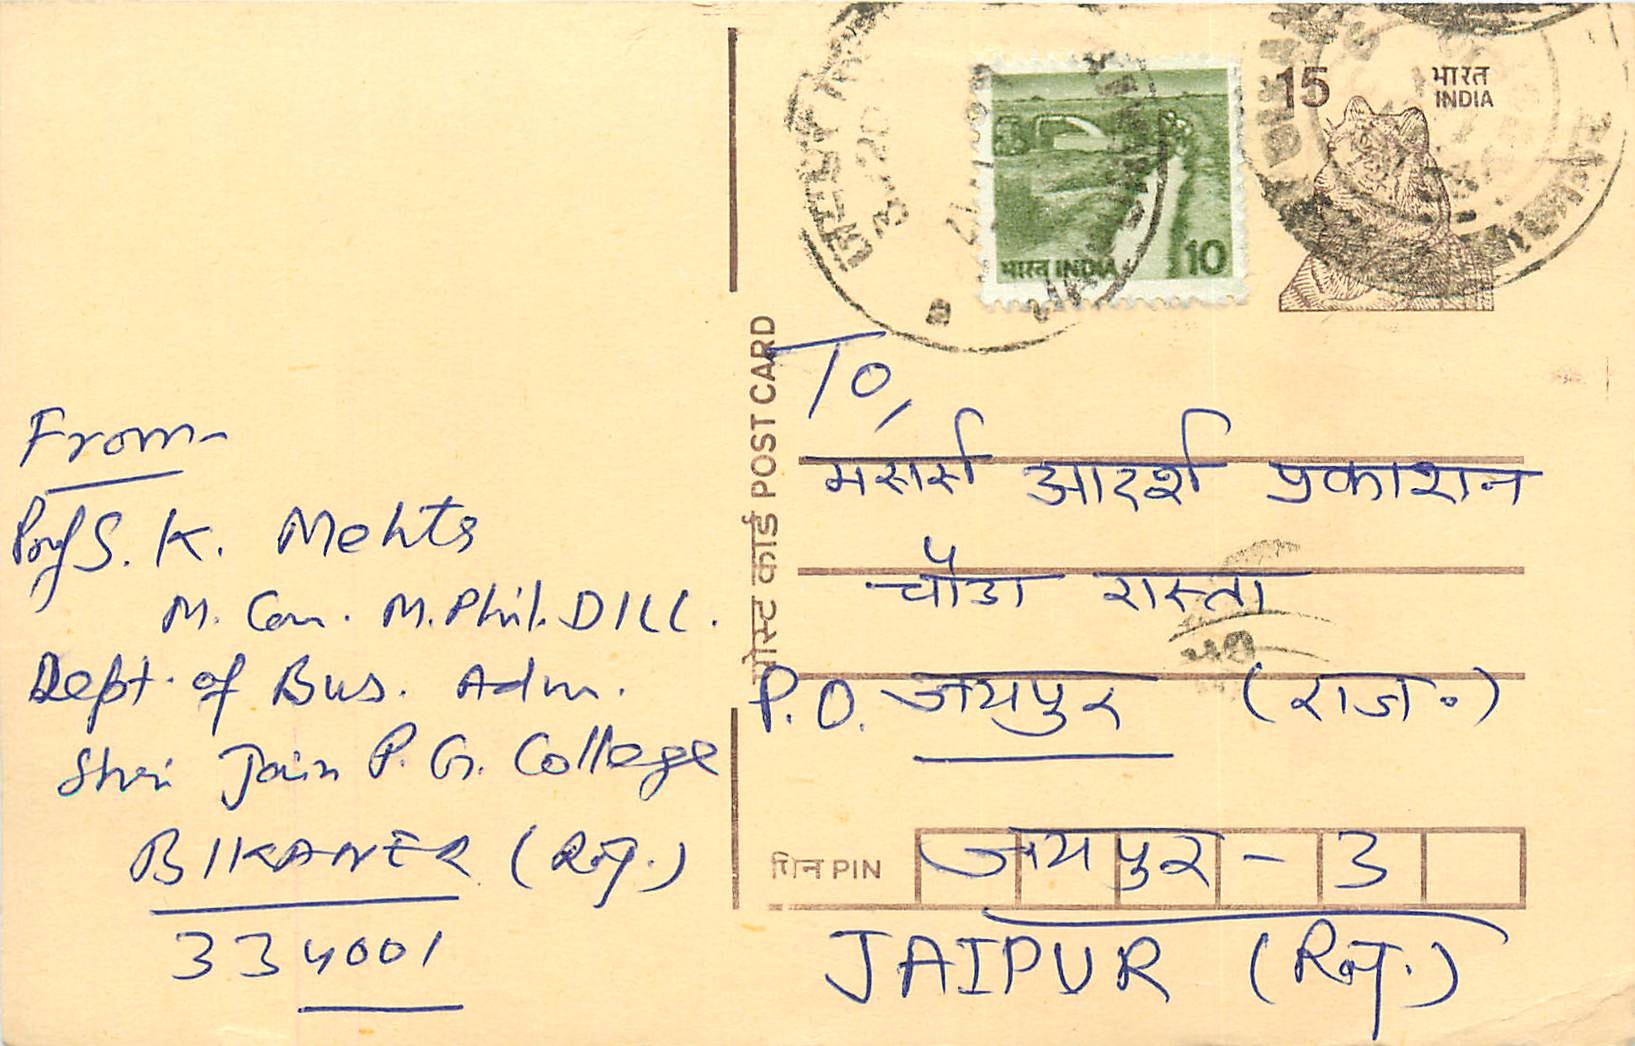 15
भारत
INDIA
भारत INDIA 10
पोस्ट कार्ड POST CARD
To,
मैसर्स आदर्श प्रकाशन
चौडा रास्ता
P.O. जयपुर (राज॰)
पिन PIN जयपुर - 3
JAIPUR (Raj.)
From-
Prof S. K. Mehta
M. Com. M.Phil. DILL.
Dept. of Bus. Adm.
Shri Jain P. G. College
BIKANER (Raj.)
334001